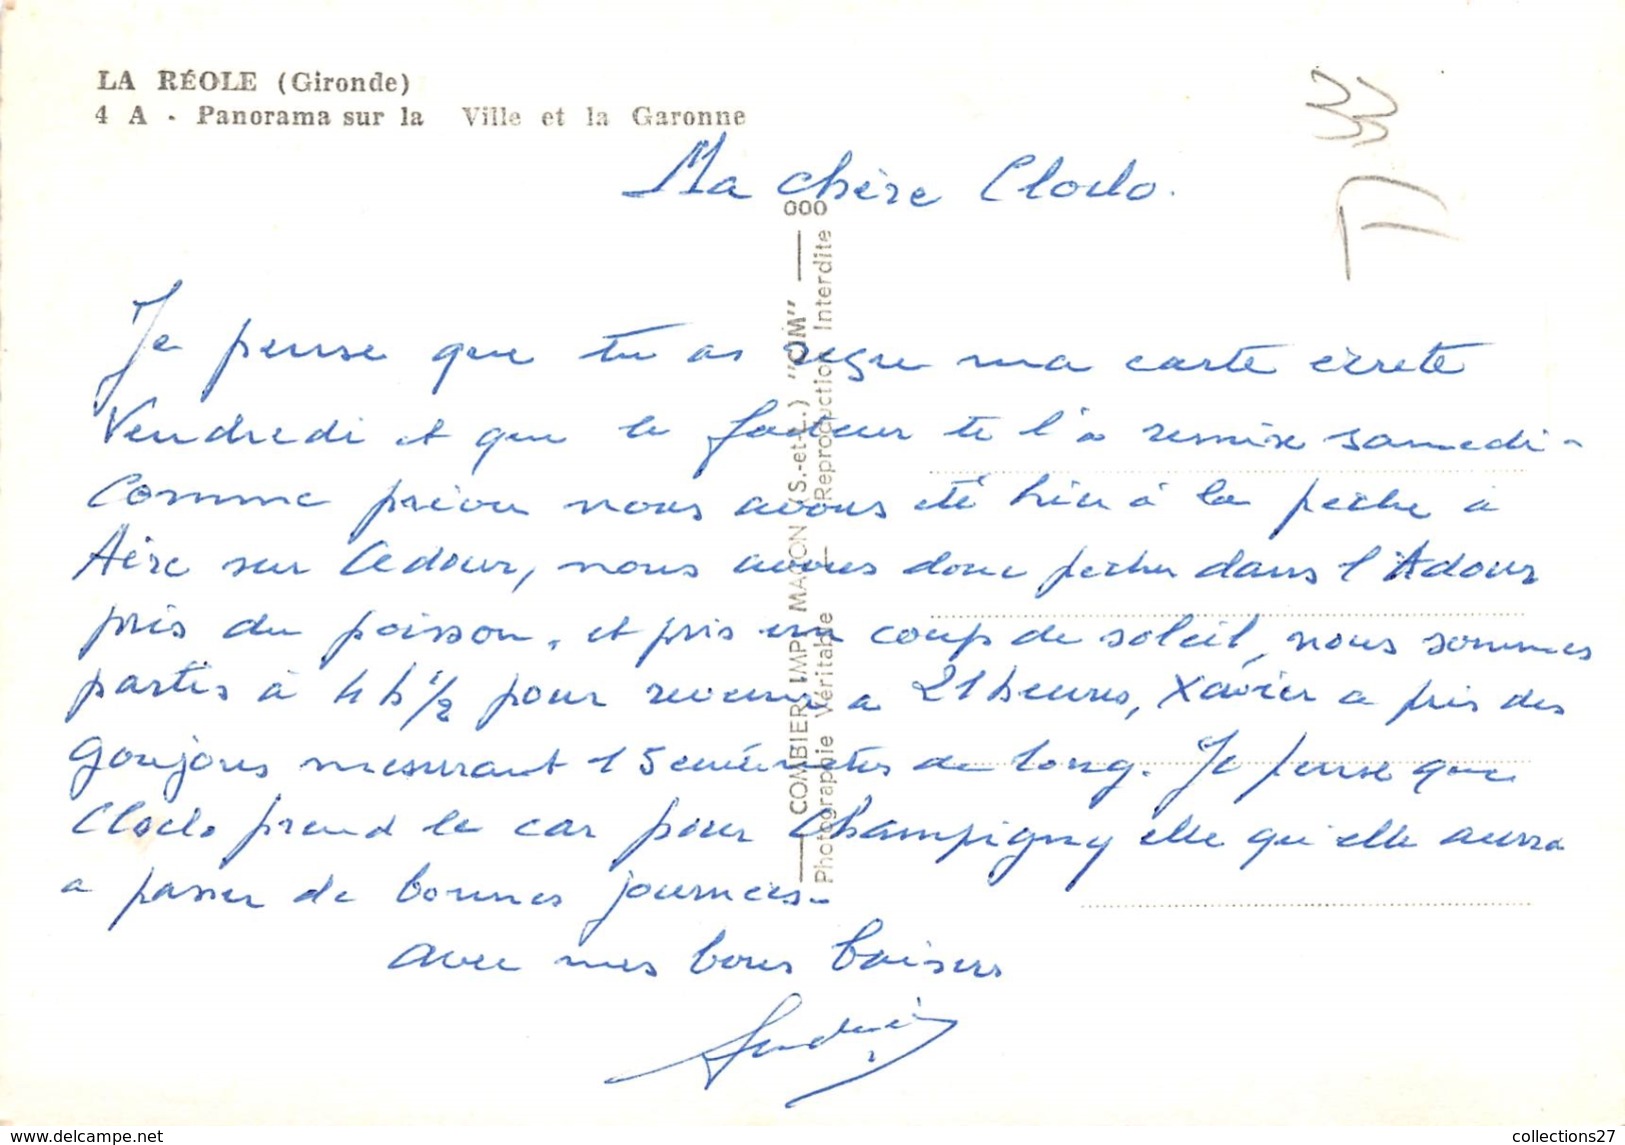 LA RÉOLE (Gironde)
4 A - Panorama sur la Ville et la Garonne
33
Ma chère Cloclo.
Je pense que tu as reçu ma carte écrete
Vendredi et que le facteur te l'a remise samedi-
Comme prévu nous avons été hier à la peche à
Aire sur Adour, nous avons donc pecher dans l'Adour
pris du poisson, et pris un coup de soleil, nous sommes
partis à 4 h 1/2 pour revenir a 21 heures, Xavier a pris des
Goujons mesurant 15 centimetres de long. Je pense que
Cloclo prend le car pour Champigny elle qu'elle aura
a passer de bonnes journées.
avec mes bons baisers
000
COMBIER IMP. MACON (S.-et-L.) "CIM"
Photographie Véritable — Reproduction Interdite
collections27